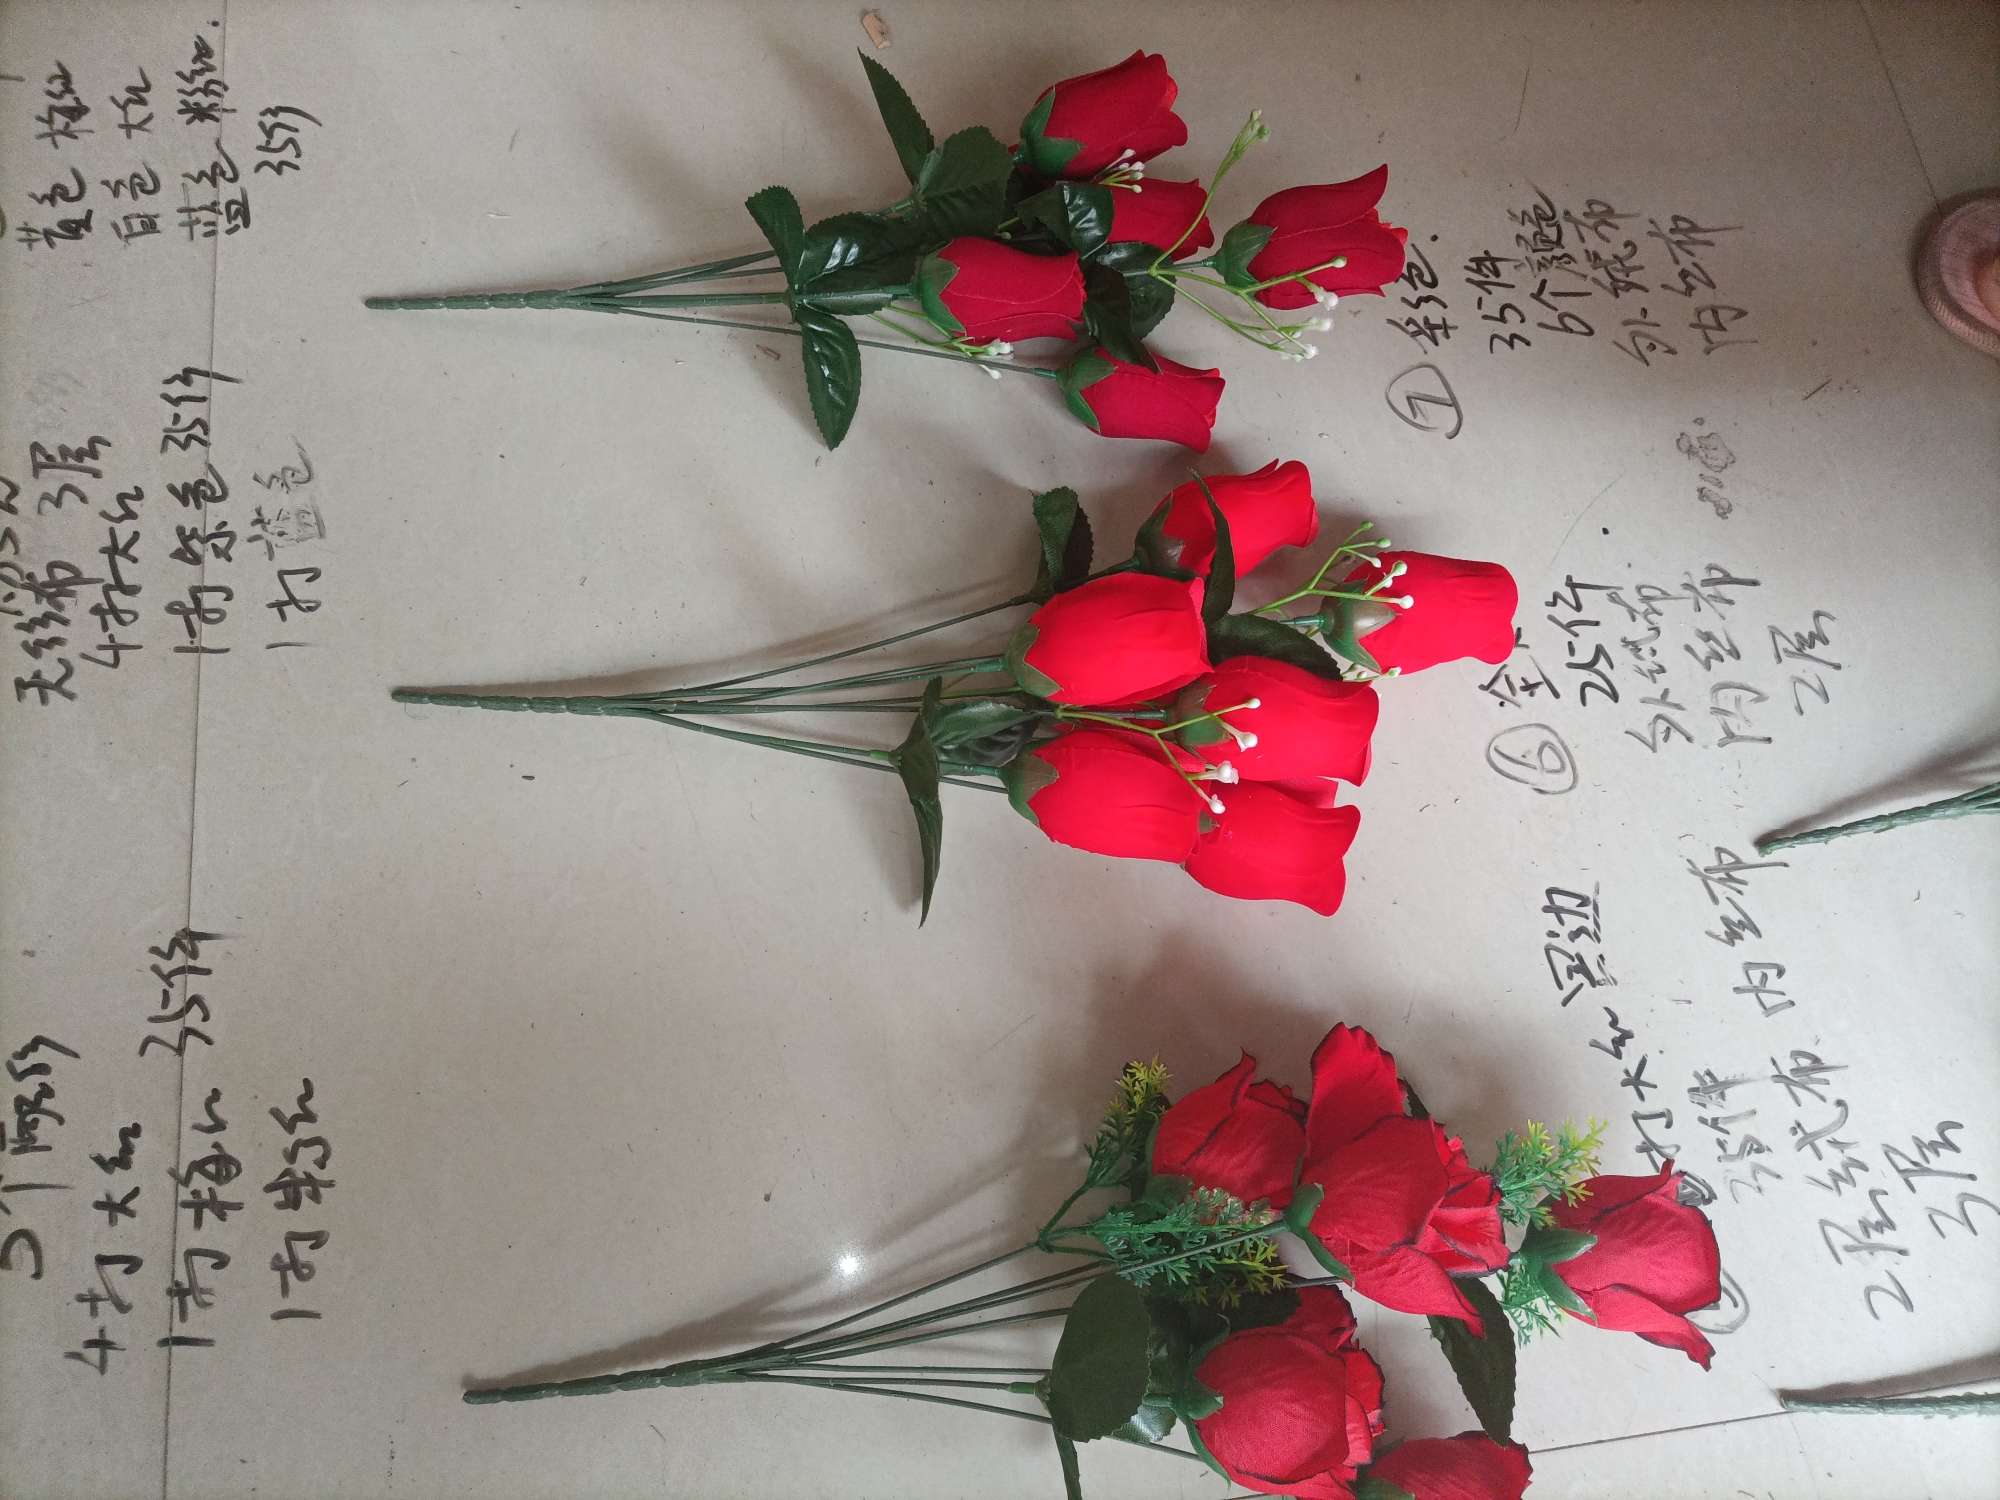 黄色 梅红
白色 大红
蓝色 粉红.
35件
无纺布 3层
4打大红
1打紫色 35件
1打蓝色
4打大红
1打梅红 35件
1打粉红
① 彩色.
35件
6个颜色
外绒布
内丝布
⑥
25件
外绒布
内丝布
2层
打大红 黑边
35件
2层绒布 内丝布
3层